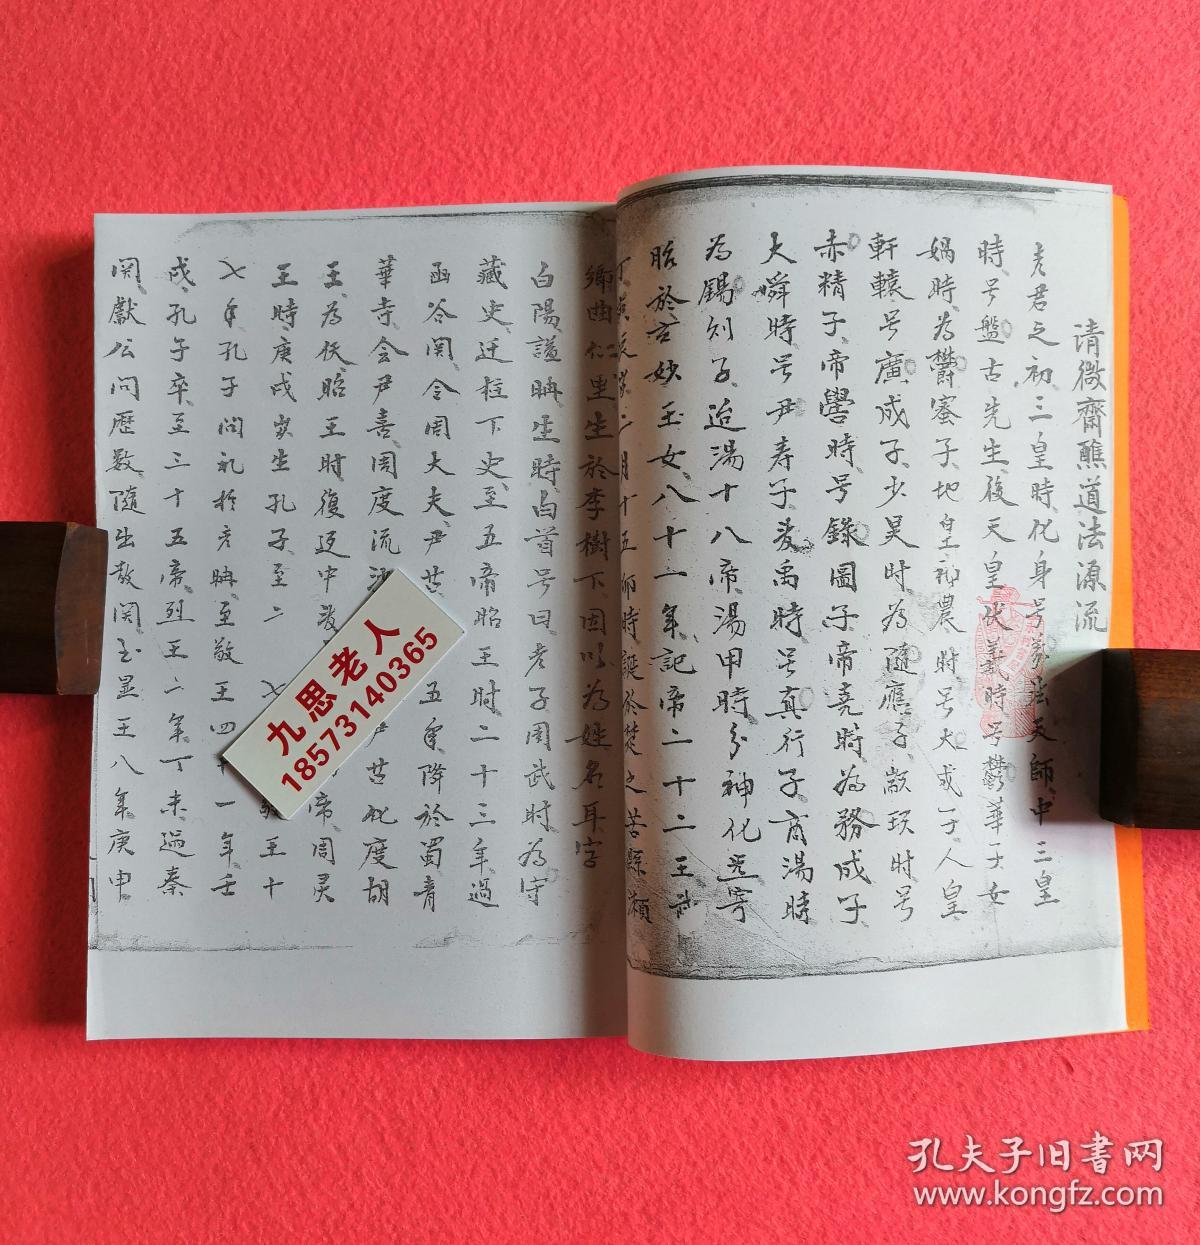 请微齋醮道法源流
老君之初三皇時化身号萬法天師中三皇
時号盤古先生後天皇伏羲時号鬱華子女
媧時為欝蜜子地皇神農時号大成子人皇
軒轅号廣成子少昊时為隨應子顓頊时号
赤精子帝嚳時号錄圖子帝堯時為務成子
大舜時号尹寿子夏禹時号真行子商湯時
為錫則子迨湯十八帝湯甲時分神化炁寄
胎於玄妙玉女八十一年記帝二十二王武
丁 二月十五卯時誕於楚之苦縣瀨
鄉曲仁里生於李樹下因以為姓名耳字
白陽謚聃生時白首号曰老子周武时為守
藏史迁柱下史至五帝昭王时二十三年過
函谷関令関大夫尹 五年降於蜀青
華寺会尹喜周度流 尹 化度胡
王為伕昭王时復迈中 帝周灵
王時庚戌岁生孔子至二 王十
七年孔子问礼於老聃至敬王四十一年壬
戌孔子卒至三十五帝烈王二年丁未過秦
関獻公问歷数随出散関至显王八年庚申
九思老人
18573140365
孔夫子旧书网
www.kongfz.com